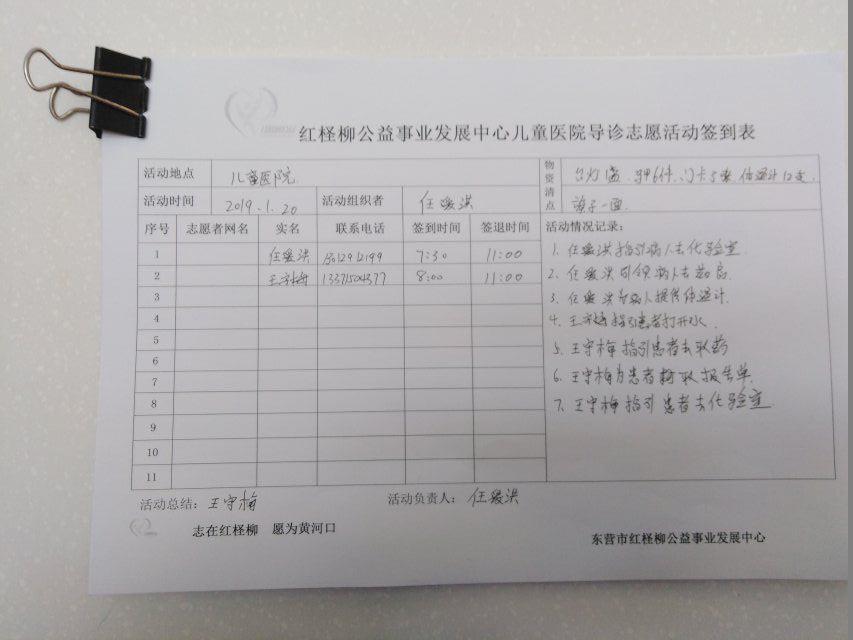 红柽柳公益事业发展中心儿童医院导诊志愿活动签到表
活动地点 儿童医院 物资清点
活动时间 2019.1.20 活动组织者 任爱洪
序号 志愿者网名 实名 联系电话 签到时间 签退时间 活动情况记录:
1 任爱洪 7:30 11:00 1. 任爱洪指引病人去化验室
2 王守梅 13371504377 8:00 11:00 2. 任爱洪引领病人去
3 3. 任爱洪为病人提供体温计.
4 4. 王守梅指引患者打开水.
5 5. 王守梅指引患者去取药
6 6. 王守梅为患者 取报告单.
7 7. 王守梅指引患者去化验室
8
9
10
11
活动总结: 王守梅 活动负责人: 任爱洪
志在红柽柳 愿为黄河口
东营市红柽柳公益事业发展中心